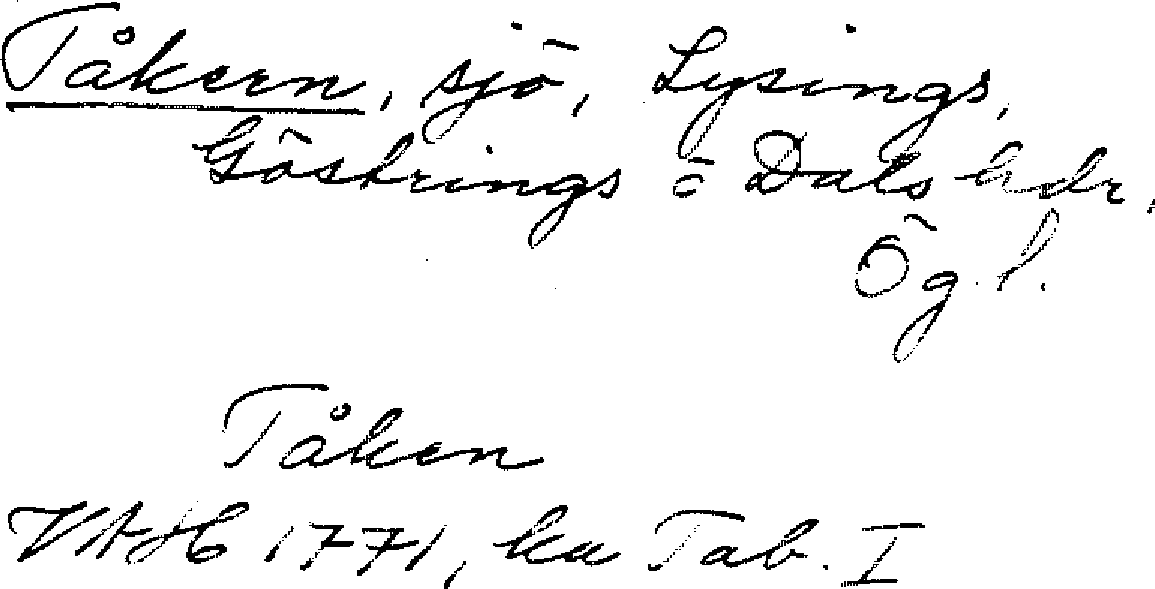 Tåkern, sjö, Lysings,
Göstrings o Dals hdr,
Ög. l.
Tåken
VAH 1771, ka Tab. I